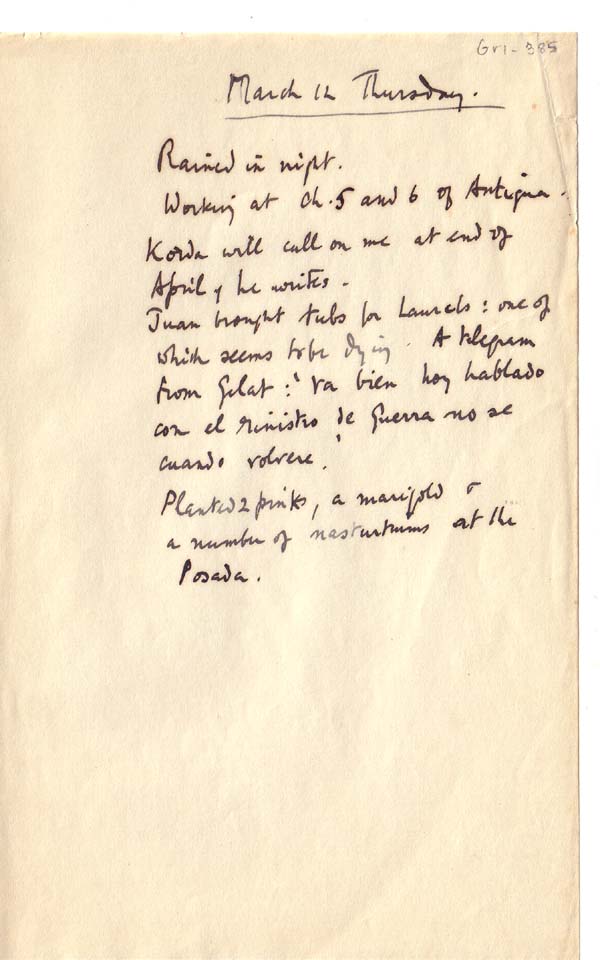 Gri-385
March 12 Thursday.
Rained in night.
Working at Ch. 5 and 6 of Antigua.
Korda will call on me at end of
April, he writes.
Juan brought tubs for Laurels: one of
which seems to be dying. A telegram
from Gelat: 'Va bien hoy hablado
con el Ministro de Guerra no se
cuando volvere.'
Planted 2 pinks, a marigold &
a number of nasturtiums at the
Posada.